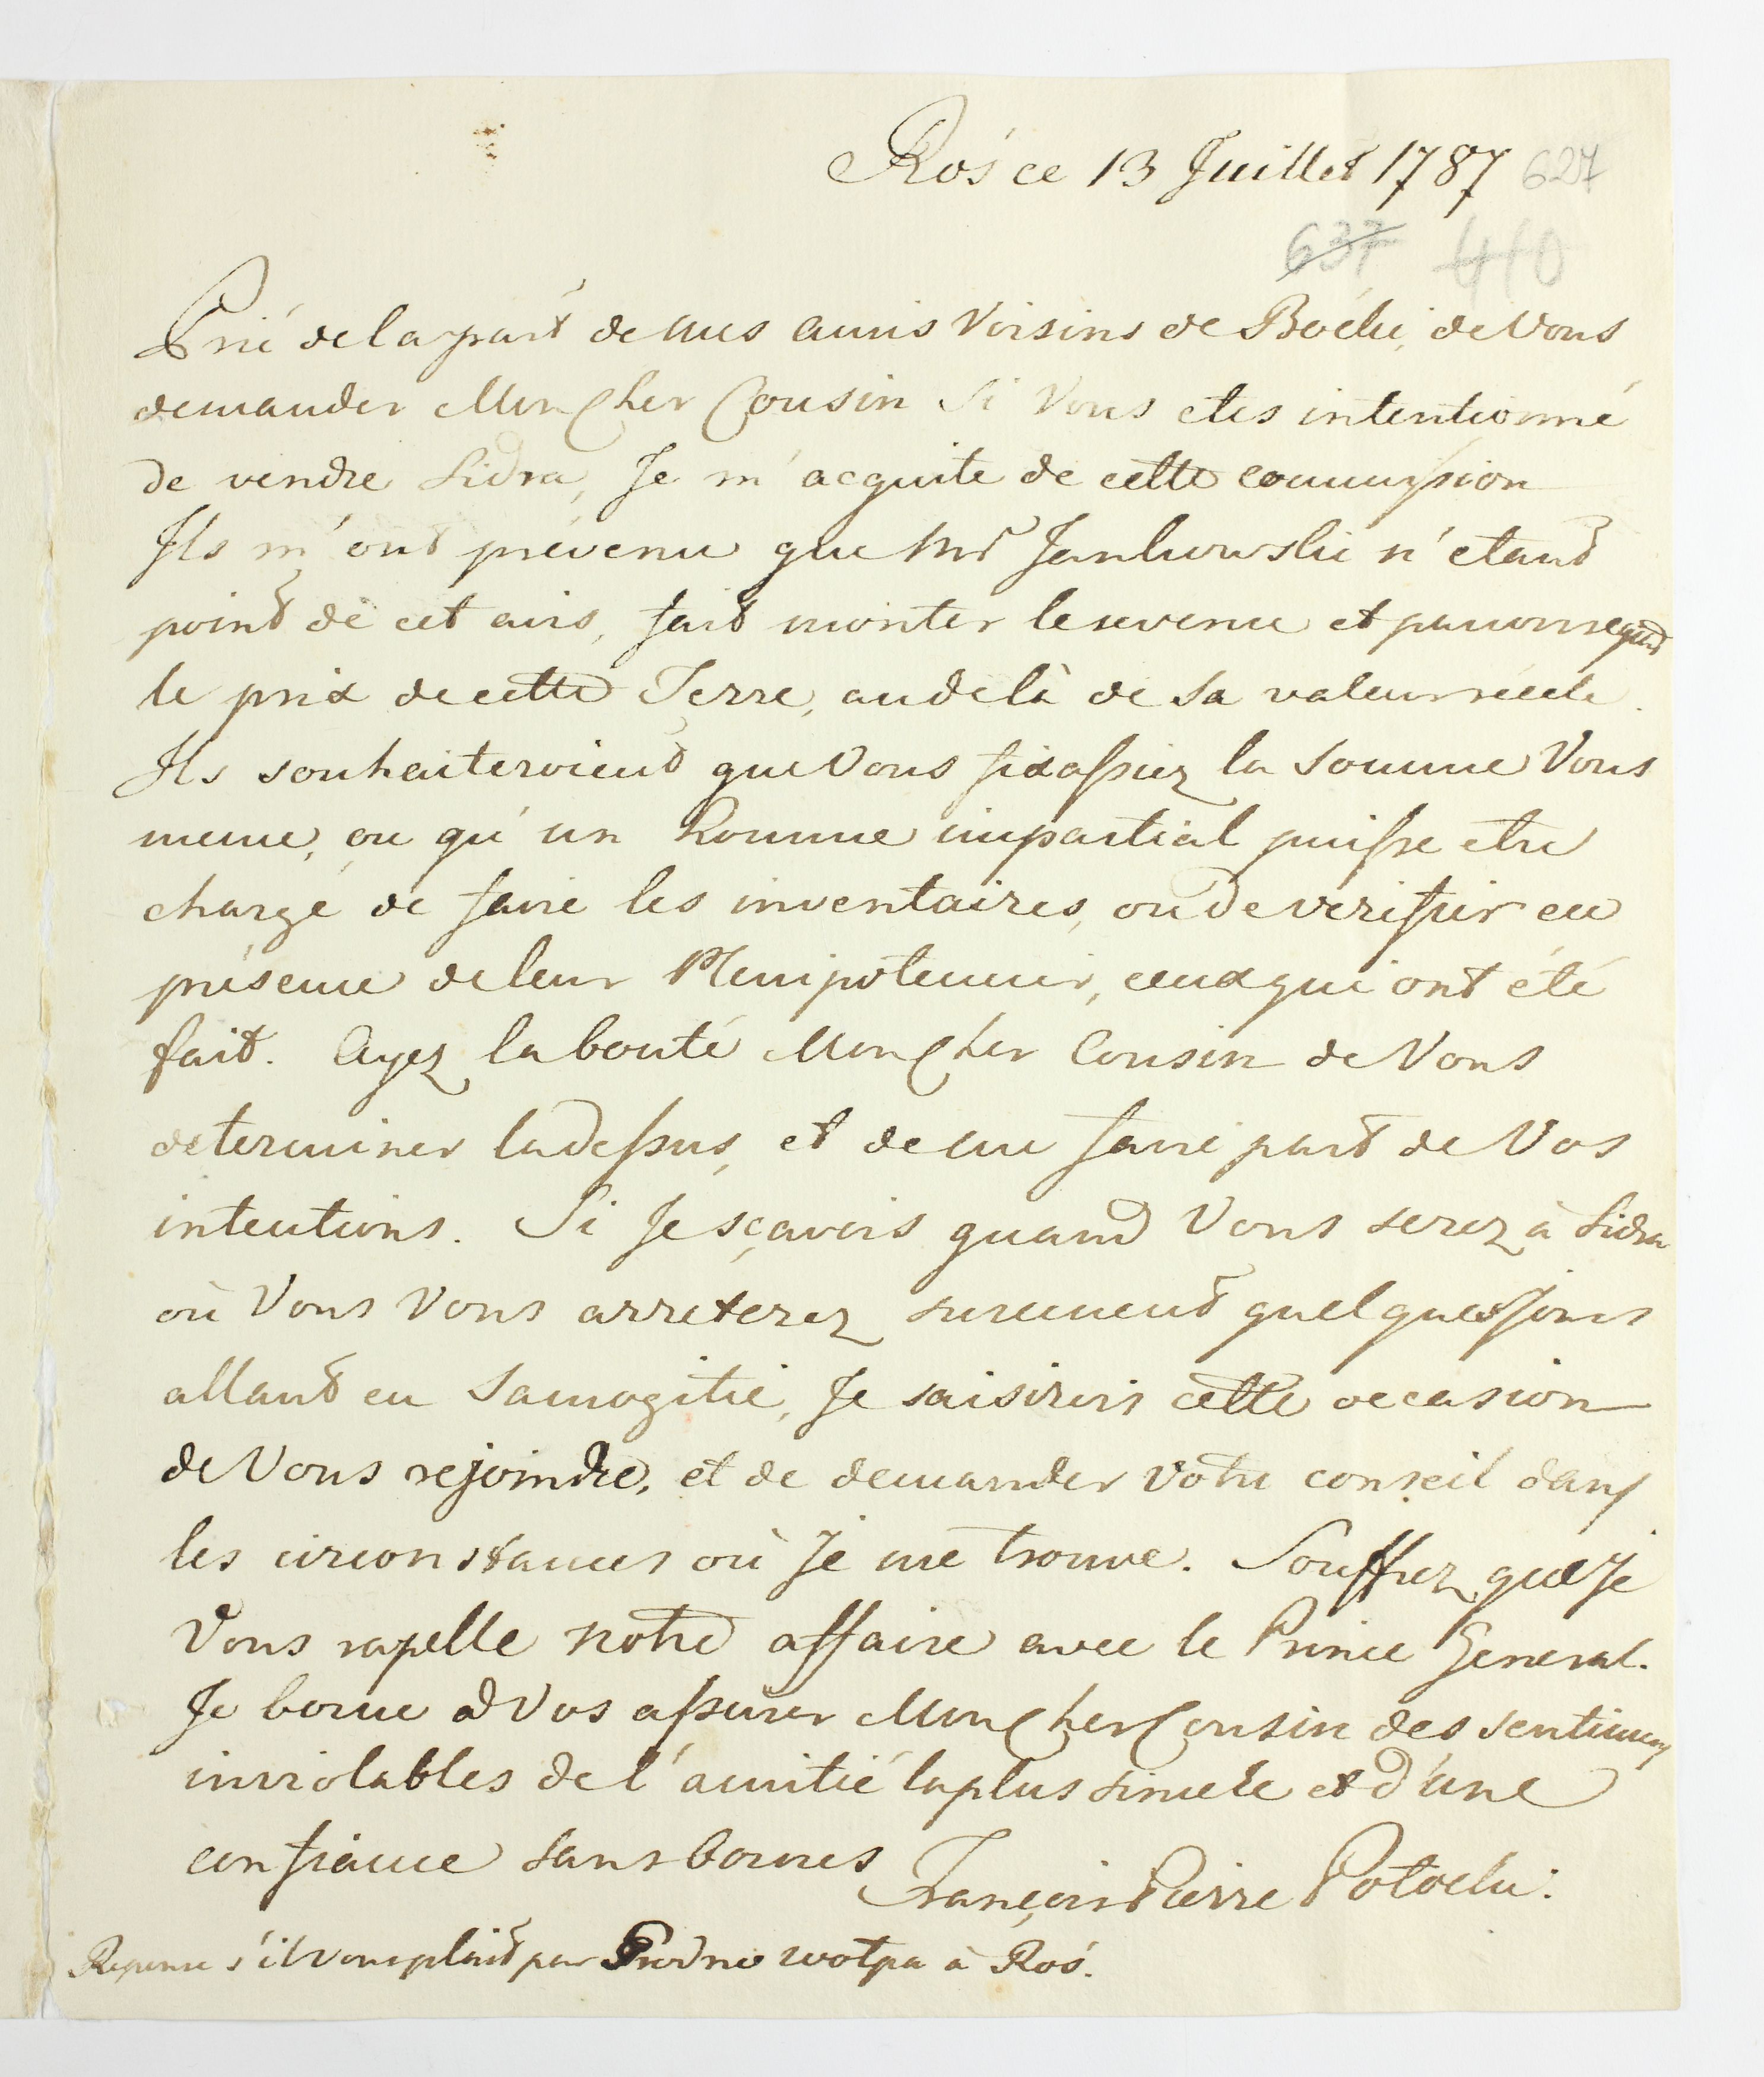 Roś ce 13 Juillet 1787 627
637 410
Prié de la part de mes amis Voisins de Boćki, de Vous
demander Mon Cher Cousin Si Vous etes intentionné
de vendre Sidra, Je m'acquite de cette commission
Ils m'ont prévenu que Mr Jankowski n'etant
point de cet avis, fait monter le revenu et par consequent
le prix de cette Terre, au delà de Sa valeur réele.
Ils souhaiteroient que Vous fixassiez la Somme Vous
meme, ou qu'un homme impartial puisse etre
chargé de faire les inventaires, ou de verifier en
présence de leur Plenipotencier, ceux qui ont été
fait. Ayez la bonté Mon Cher Cousin de Vous
determiner ladessus, et de me faire part de Vos
intentions. Si Je sçavois quand Vous serez à Sidra
où Vous Vous arreterez surement quelques jours
allant en Samogitie, Je saisirois cette occasion
de Vous rejoindre, et de demander votre conseil dans
les circonstances où Je me trouve. Souffrez que Je
Vous rapelle notre affaire avec le Prince General.
Je borne à Vos assurer Mon Cher Cousin des sentimens
inviolables de l'amitié la plus sincere et d'une
confiance sans bornes François Pierre Potocki.
Reponse s'il Vous plait par Grodno wołpa à Roś.